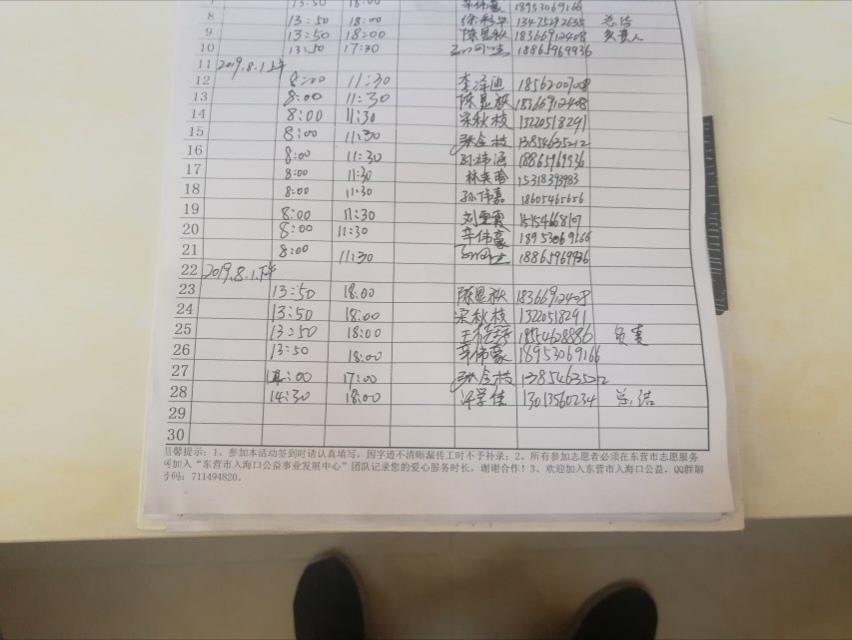 18:00 18953069166
8 13:50 18:00 13475292635 总结
9 13:50 18:00 陈显秋 18366912408 负责人
10 13:50 17:30 18865969936
11 2019.8.1上午
12 8:00 11:30 李泽迪
13 8:00 11:30 陈显秋 18366912408
14 8:00 11:30 宋秋枝 13220518291
15 8:00 11:30 张金枝 13854635212
16 8:00 11:30 18865969936
17 8:00 11:30 林英 15318393983
18 8:00 11:30 孙伟嘉 18605465656
19 8:00 11:30
20 8:00 11:30 辛伟豪 18953069166
21 8:00 11:30 18865969936
22 2019.8.1下午
23 13:50 18:00 陈显秋 18366912408
24 13:50 18:00 宋秋枝 13220518291
25 13:50 18:00 18554628886 负责
26 13:50 18:00 辛伟豪 18953069166
27 14:00 17:00 张金枝 13854635212
28 14:30 18:00 许学佳 13013560234 总结
29
30
温馨提示:1、参加本活动签到时请认真填写,因字迹不清晰漏传工时不予补录;2、所有参加志愿者必须在东营市志愿服务
可加入“东营市入海口公益事业发展中心”团队记录您的爱心服务时长,谢谢合作!3、欢迎加入东营市入海口公益,QQ群聊
号码:711494820。